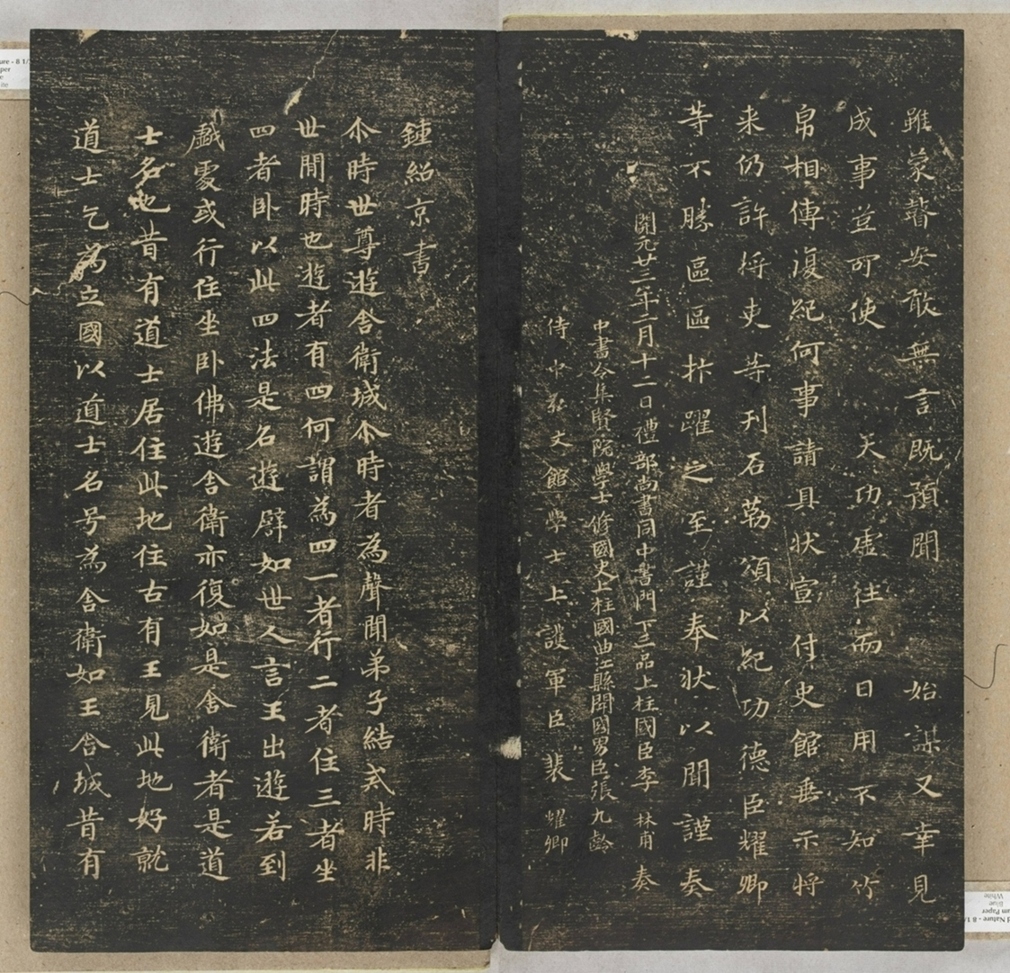 雖蒙瞽安敢無言既預聞 始謀又幸見
成事豈可使 天功虛往而日用不知竹
帛相傳復紀何事請具狀宣付史館垂示將
来仍許將吏等刊石勒頌以紀功德臣耀卿
等不勝區區抃躍之至謹奉狀以聞謹奏
開元廿三年二月十二日禮部尚書同中書門下三品上柱國臣李林甫奏
中書令集賢院學士修國史上柱國曲江縣開國男臣張九齡
侍中弘文館學士上護軍臣裴耀卿
鍾紹京書
尒時世尊遊舍衛城尒時者為聲聞弟子結戒時非
世間時也遊者有四何謂為四一者行二者住三者坐
四者卧以此四法是名遊譬如世人言王出遊若到
戲處或行住坐卧佛遊舍衛亦復如是舍衛者是道
士名也昔有道士居住此地住古有王見此地好就
道士乞為立國以道士名号為舍衛如王舍城昔有